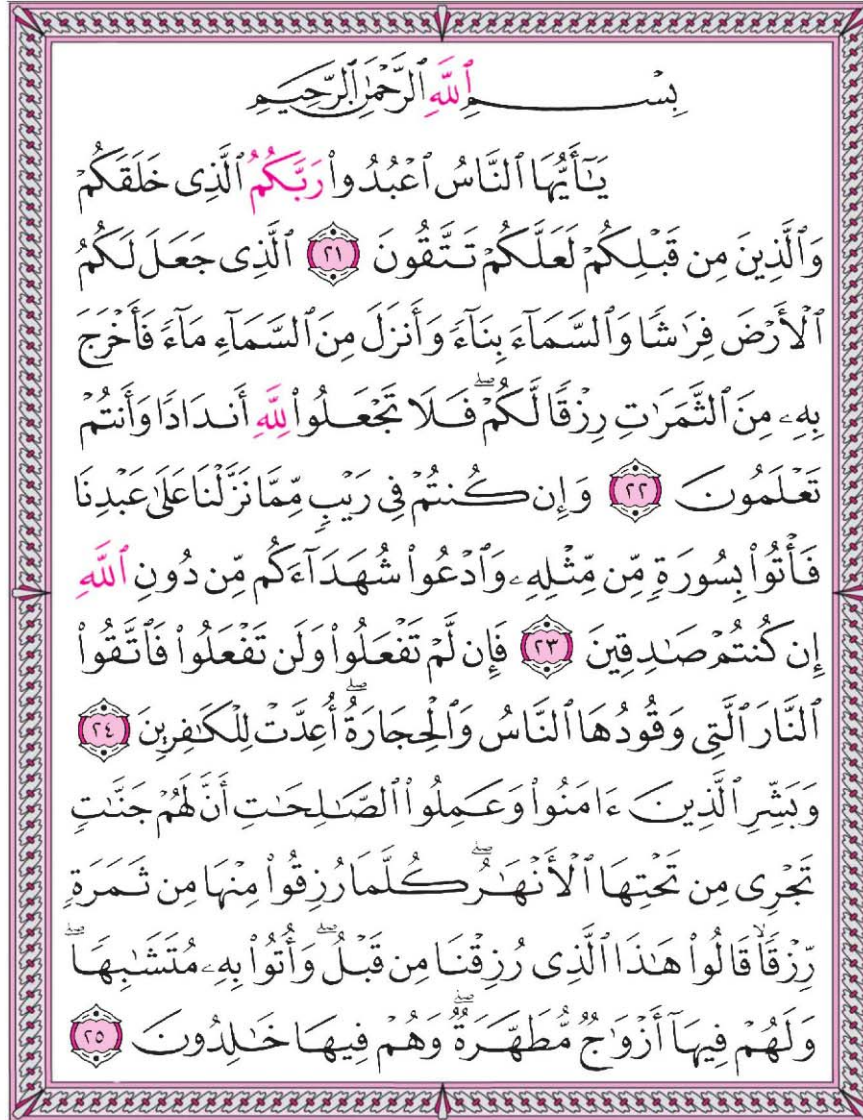 بِسْمِ ٱللَّهِ ٱلرَّحْمَٰنِ ٱلرَّحِيمِ
يَـٰٓأَيُّهَا ٱلنَّاسُ ٱعْبُدُوا۟ رَبَّكُمُ ٱلَّذِى خَلَقَكُمْ
وَٱلَّذِينَ مِن قَبْلِكُمْ لَعَلَّكُمْ تَتَّقُونَ ٢١ ٱلَّذِى جَعَلَ لَكُمُ
ٱلْأَرْضَ فِرَٰشًا وَٱلسَّمَآءَ بِنَآءً وَأَنزَلَ مِنَ ٱلسَّمَآءِ مَآءً فَأَخْرَجَ
بِهِۦ مِنَ ٱلثَّمَرَٰتِ رِزْقًا لَّكُمْ ۖ فَلَا تَجْعَلُوا۟ لِلَّهِ أَندَادًا وَأَنتُمْ
تَعْلَمُونَ ٢٢ وَإِن كُنتُمْ فِى رَيْبٍ مِّمَّا نَزَّلْنَا عَلَىٰ عَبْدِنَا
فَأْتُوا۟ بِسُورَةٍ مِّن مِّثْلِهِۦ وَٱدْعُوا۟ شُهَدَآءَكُم مِّن دُونِ ٱللَّهِ
إِن كُنتُمْ صَـٰدِقِينَ ٢٣ فَإِن لَّمْ تَفْعَلُوا۟ وَلَن تَفْعَلُوا۟ فَٱتَّقُوا۟
ٱلنَّارَ ٱلَّتِى وَقُودُهَا ٱلنَّاسُ وَٱلْحِجَارَةُ ۖ أُعِدَّتْ لِلْكَـٰفِرِينَ ٢٤
وَبَشِّرِ ٱلَّذِينَ ءَامَنُوا۟ وَعَمِلُوا۟ ٱلصَّـٰلِحَـٰتِ أَنَّ لَهُمْ جَنَّـٰتٍ
تَجْرِى مِن تَحْتِهَا ٱلْأَنْهَـٰرُ ۖ كُلَّمَا رُزِقُوا۟ مِنْهَا مِن ثَمَرَةٍ
رِّزْقًا ۙ قَالُوا۟ هَـٰذَا ٱلَّذِى رُزِقْنَا مِن قَبْلُ ۖ وَأُتُوا۟ بِهِۦ مُتَشَـٰبِهًا ۖ
وَلَهُمْ فِيهَآ أَزْوَٰجٌ مُّطَهَّرَةٌ ۖ وَهُمْ فِيهَا خَـٰلِدُونَ ٢٥